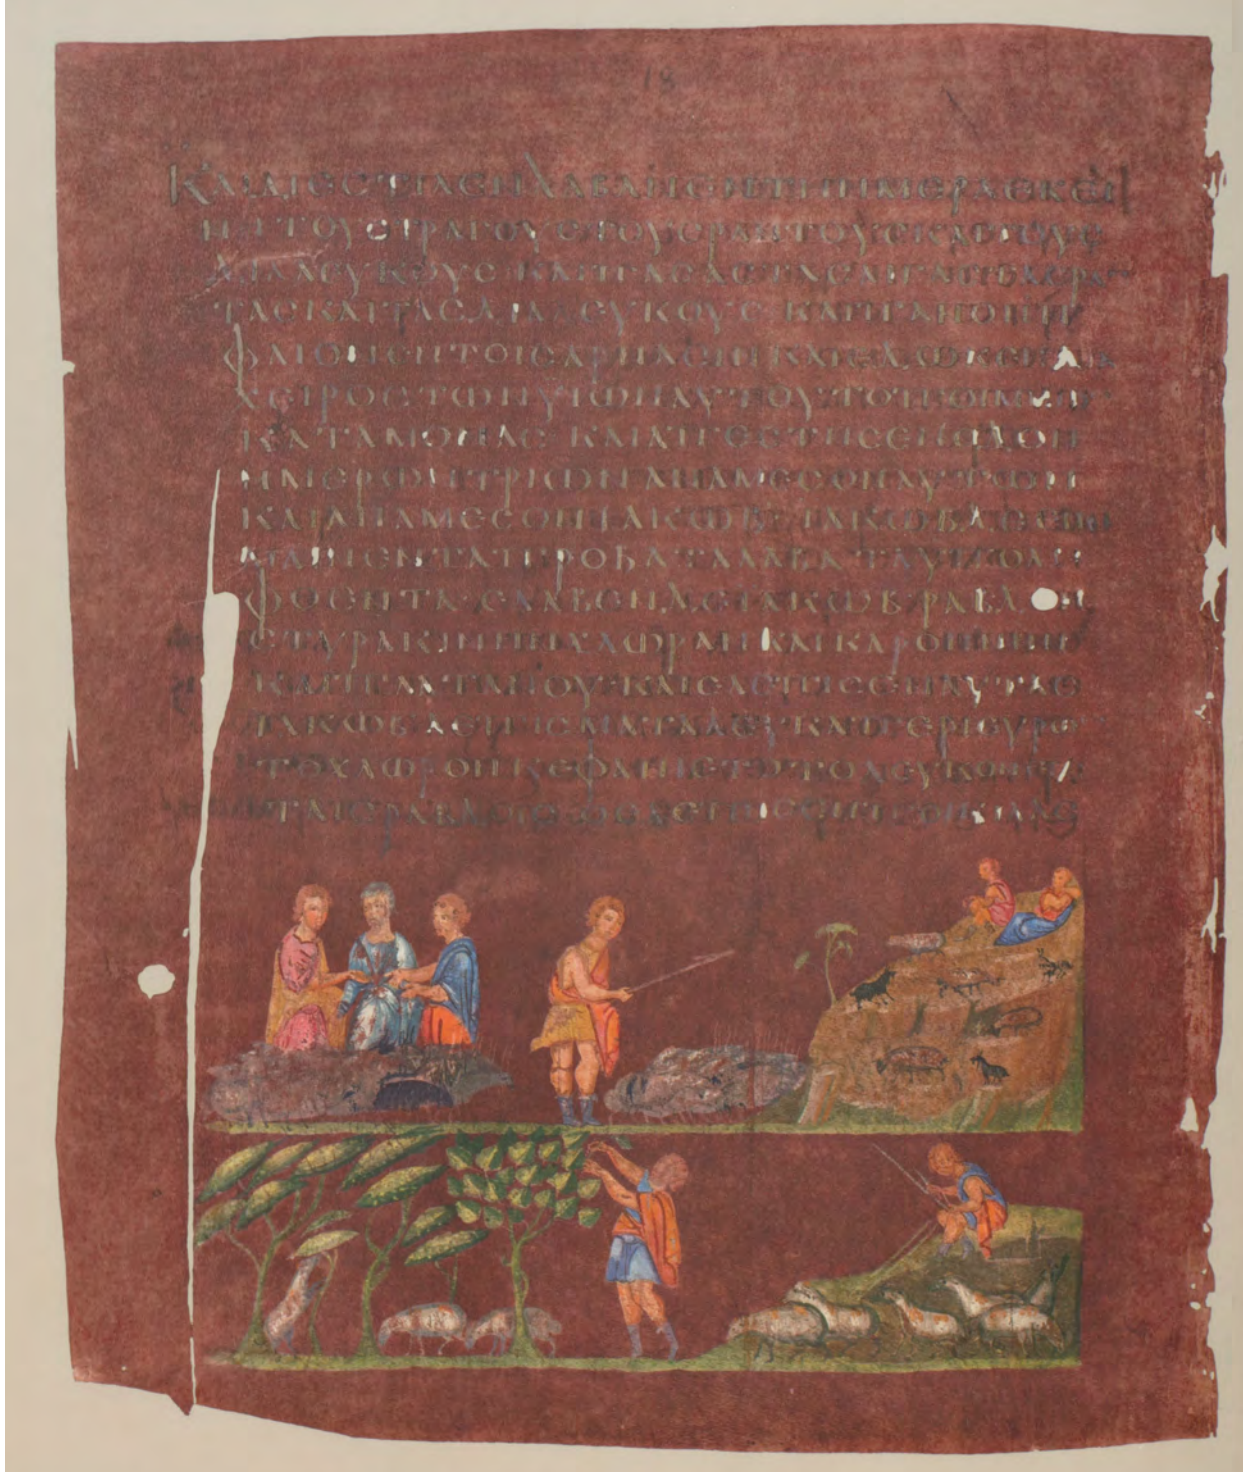 ΚΑΙ ΔΙΕϹΤΙΛΕΝ ΛΑΒΑΝ ΕΝ ΤΗ ΗΜΕΡΑ ΕΚΕΙ
ΝΗ ΤΟΥϹ ΤΡΑΓΟΥϹ ΤΟΥϹ ΡΑΝΤΟΥϹ ΚΑΙ ΤΟΥϹ
ΔΙΑΛΕΥΚΟΥϹ ΚΑΙ ΠΑϹΑϹ ΤΑϹ ΑΙΓΑϹ
ΤΑϹ ΚΑΙ ΤΑϹ ΔΙΑΛΕΥΚΟΥϹ ΚΑΙ ΠΑΝ Ο ΗΝ
ΦΑΙΟΝ ΕΝ ΤΟΙϹ ΑΡΝΑϹΙΝ ΚΑΙ ΕΔΩΚΕΝ ΔΙΑ
ΧΕΙΡΟϹ ΤΩΝ ΥΙΩΝ ΑΥΤΟΥ ΤΟ ΠΟΙΜΝΙΟΝ
ΚΑΤΑ ΜΟΝΑϹ ΚΑΙ ΑΠΕϹΤΗϹΕΝ ΟΔΟΝ
ΗΜΕΡΩΝ ΤΡΙΩΝ ΑΝΑ ΜΕϹΟΝ ΑΥΤΩΝ
ΚΑΙ ΑΝΑ ΜΕϹΟΝ ΙΑΚΩΒ ΙΑΚΩΒ ΔΕ ΕΠΟΙ
ΜΑΙΝΕΝ ΤΑ ΠΡΟΒΑΤΑ ΛΑΒΑ ΤΑ ΥΠΟΛΙ
ΦΘΕΝΤΑ ΕΛΑΒΕΝ ΔΕ ΙΑΚΩΒ ΡΑΒΔΟΝ
ϹΤΥΡΑΚΙΝΗΝ ΧΛΩΡΑΝ ΚΑΙ ΚΑΡΟΙΝΗΝ
ΚΑΙ ΠΛΑΤΑΝΟΥ ΚΑΙ ΕΛΕΠΙϹΕΝ ΑΥΤΑϹ
ΙΑΚΩΒ ΛΕΠΙϹΜΑΤΑ ΛΕΥΚΑ ΠΕΡΙϹΥΡΩ
ΤΟ ΧΛΩΡΟΝ ΚΕ ΕΦΑΙΝΕΤΟ ΤΟ ΛΕΥΚΟΝ ΕΝ
ΤΑΙϹ ΡΑΒΔΟΙϹ ΕΛΕΠΙϹΕΝ ΠΟΙΚΙΛΟϹ